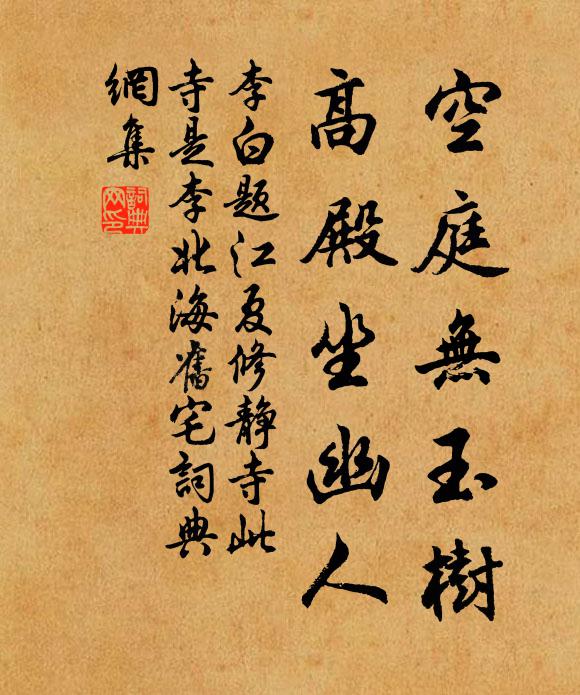 空庭無玉樹
高殿坐幽人
李白题江夏修静寺此
寺是李北海舊宅詞典
網集
詞典
网印